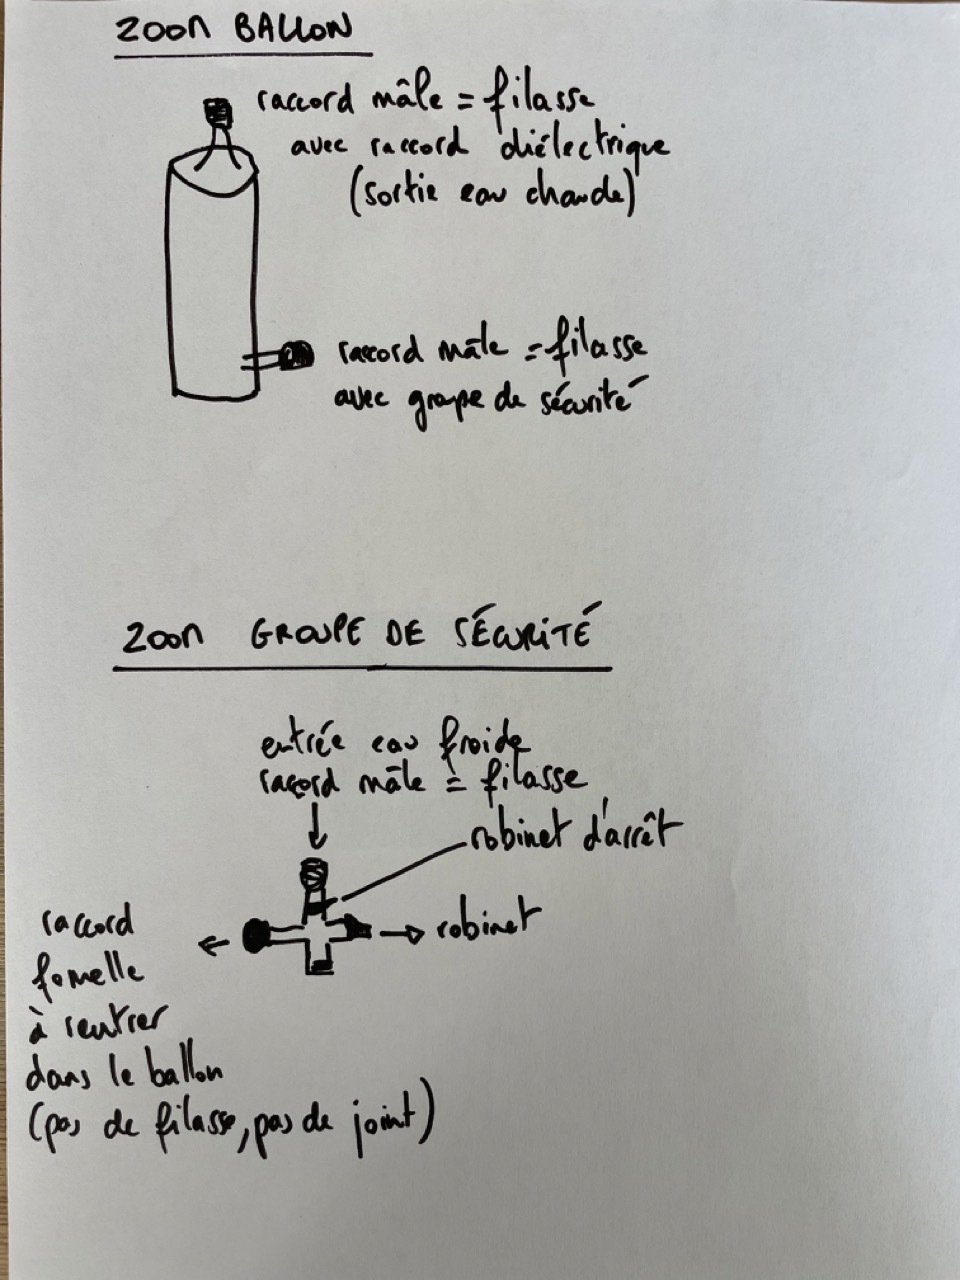 ZOOM BALLON
raccord mâle = filasse
avec raccord diélectrique
(sortie eau chaude)
raccord mâle = filasse
avec groupe de sécurité
ZOOM GROUPE DE SÉCURITÉ
entrée eau froide
raccord mâle = filasse
robinet d'arrêt
robinet
raccord
femelle
à rentrer
dans le ballon
(pas de filasse, pas de joint)